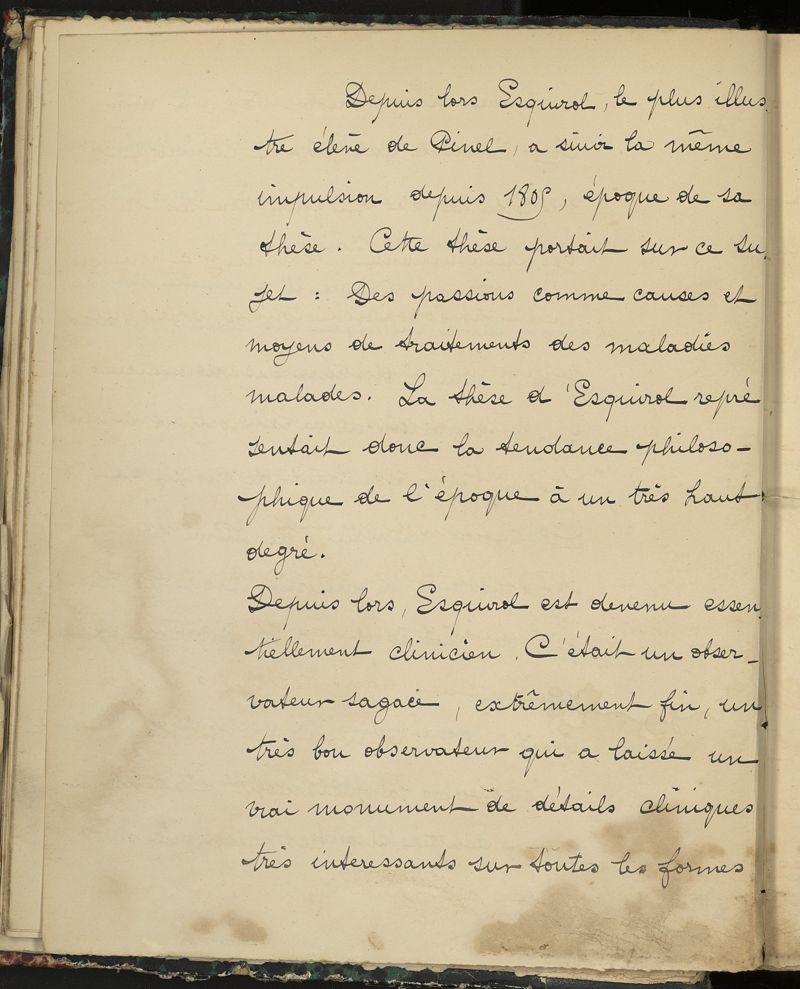 Depuis lors Esquirol, le plus illus-
tre élève de Pinel, a suivi la même
impulsion depuis 1805, époque de sa
thèse. Cette thèse portait sur ce su-
jet : Des passions comme causes et
moyens de traitements des maladies
malades. La thèse d'Esquirol repré
sentait donc la tendance philoso-
phique de l'époque à un très haut
degré.
Depuis lors, Esquirol est devenu essen-
tiellement clinicien. C'était un obser-
vateur sagace, extrêmement fin, un
très bon observateur qui a laissé un
vrai monument de détails cliniques
très interessants sur toutes les formes